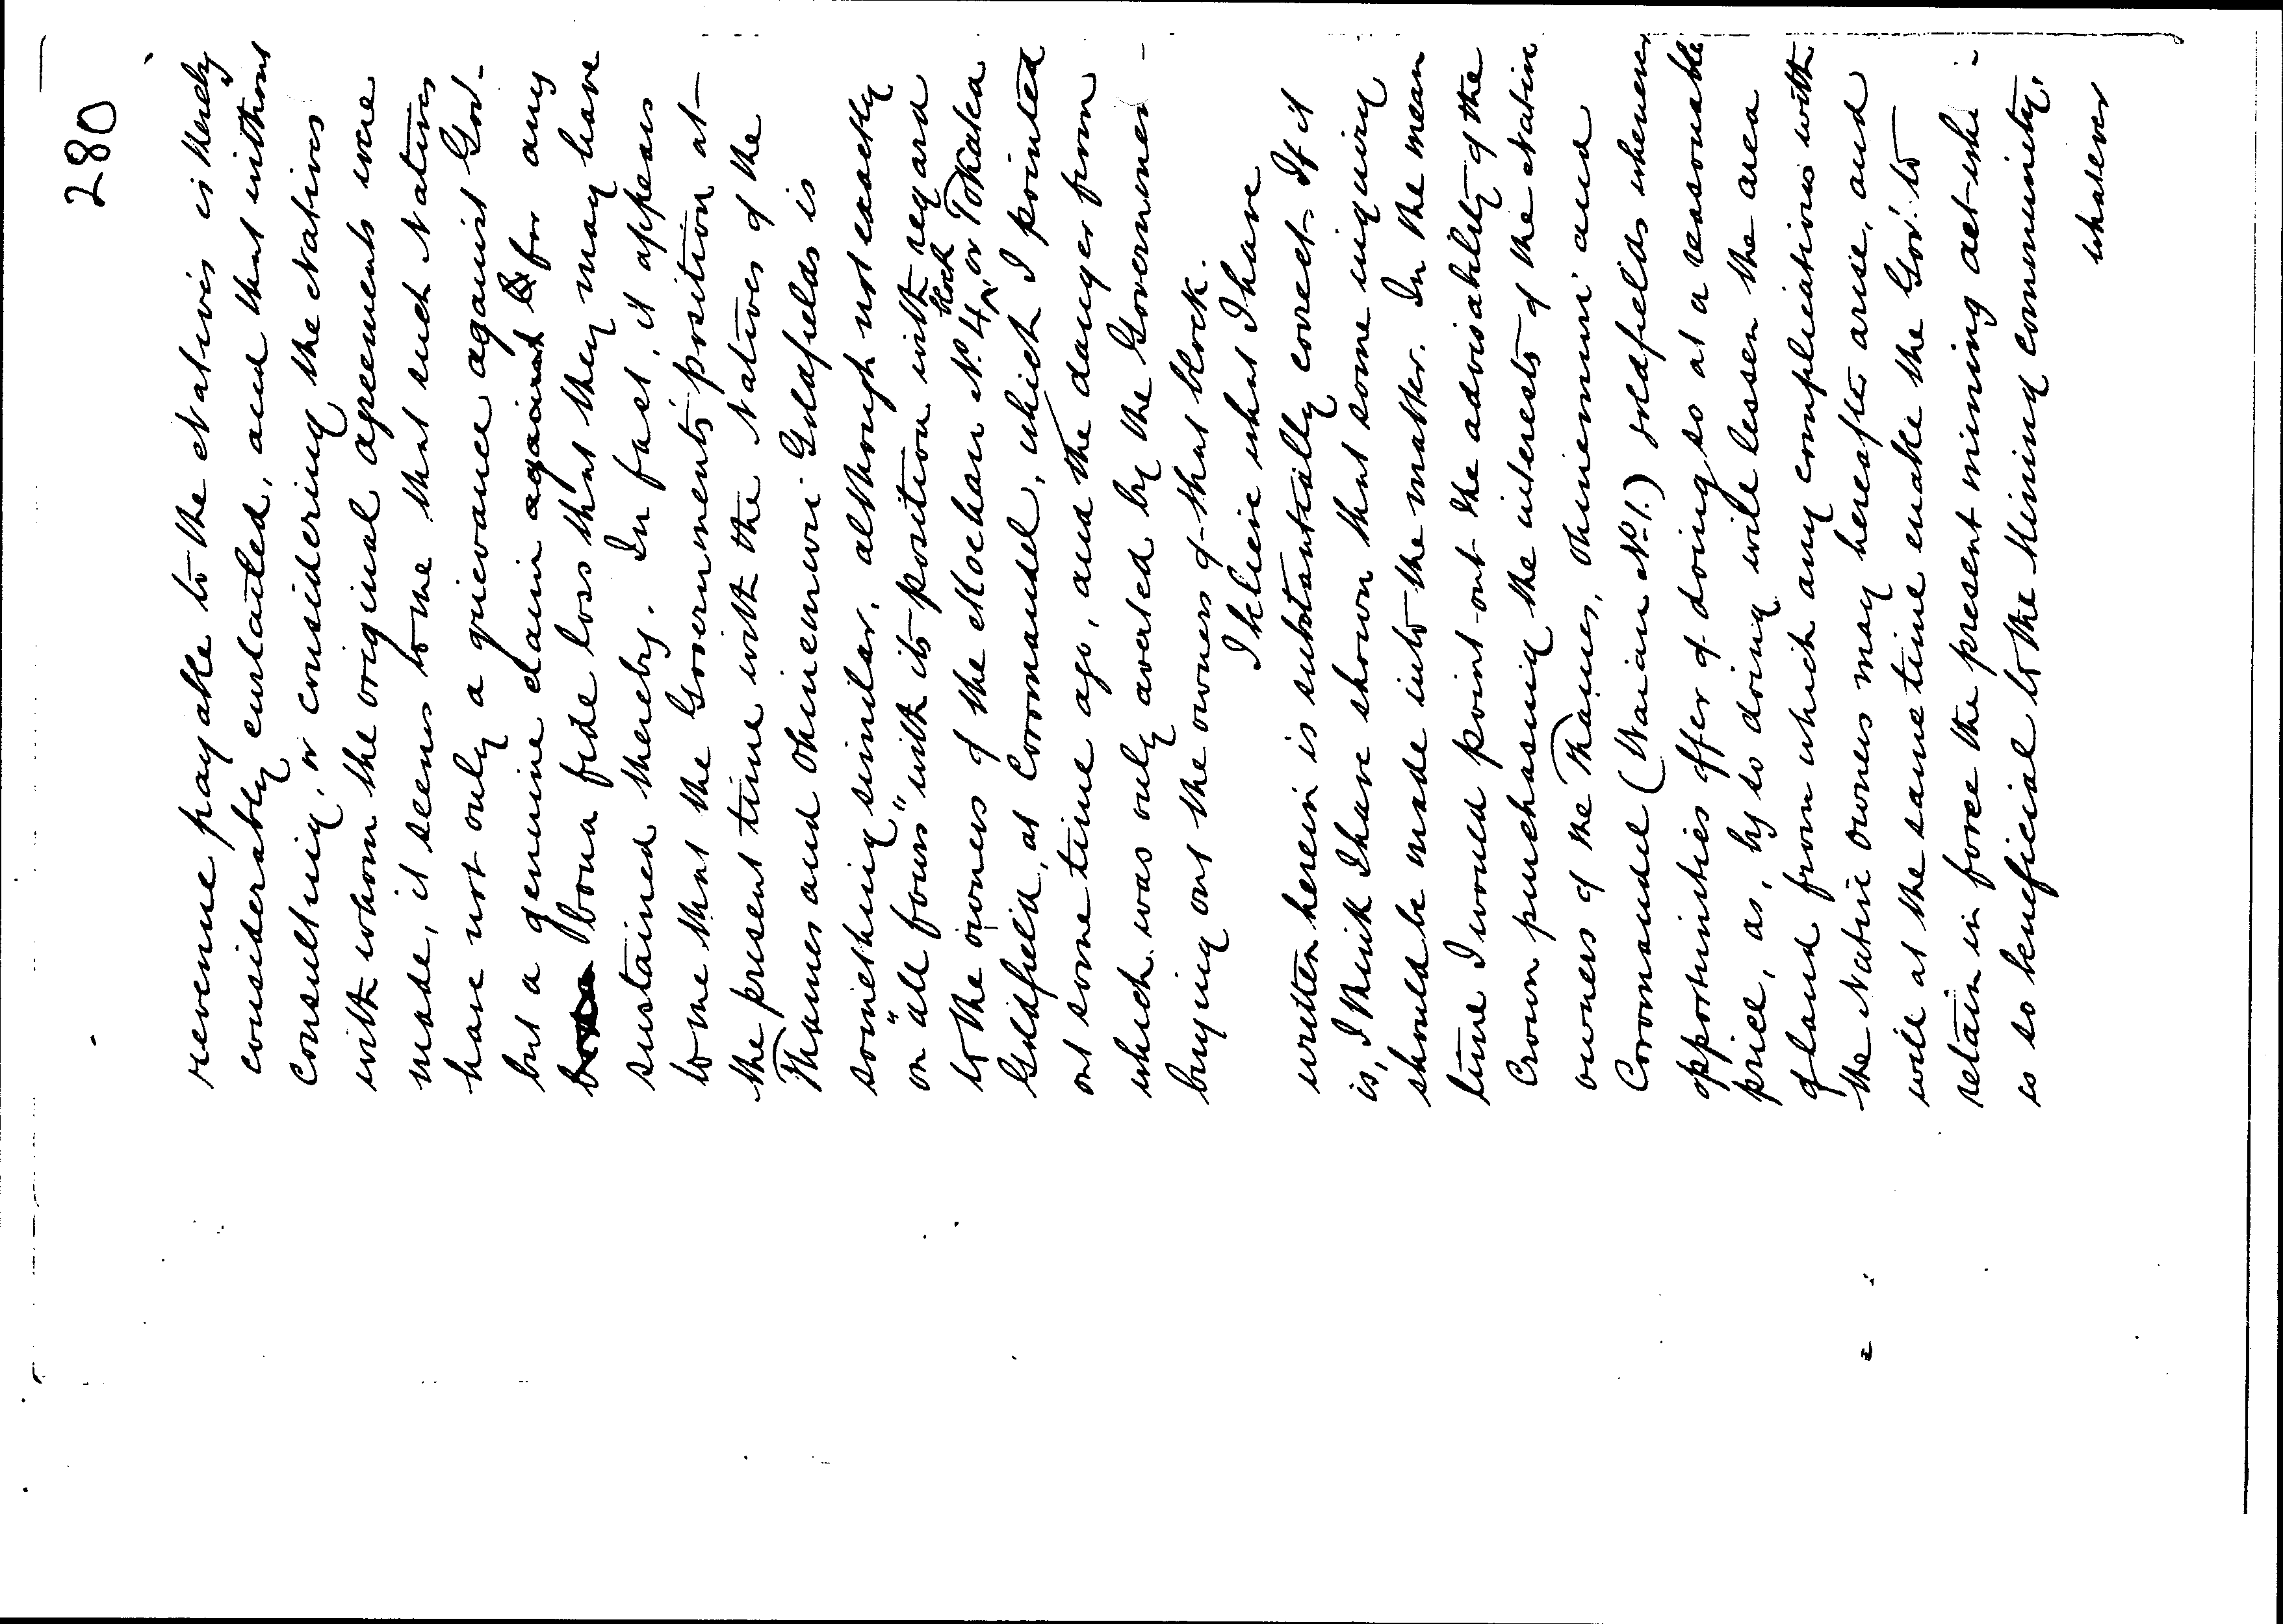 280
revenue payable to the Natives is thereby
considerably curtailed, and that without
consulting, or considering the Natives
with whom the original agreements were
made, it seems to me that such Natives
have not only a grievance against Gov-
but a genuine claim against & for any
bona fide loss that they may have
sustained thereby. In fact, it appears
to me that the Government's position at
the present time with the Natives of the
Thames and Ohinemuri Goldfields is
something similar, although not exactly
on "all fours" with its position with regard
to the owners of the Moehau No. 4 block or Tokatea
Goldfield, at Coromandel, which I pointed
out some time ago, and the danger from
which was only averted by the Government
buying out the owners of that block.
I believe what I have
written herein is substantially correct. If it
is, I think I have shown that some inquiry
should be made into the matter. In the mean
time I would point out the advisability of the
Crown purchasing the interests of the Native
owners of the Thames, Ohinemuri and
Coromandel (Waiau No. 1.) goldfields whenever
opportunities offer of doing so at a reasonable
price, as, by so doing will lessen the area
of land from which any complications with
the Native owners may hereafter arise, and
will at the same time enable the Gov. to
retain in force the present mining act which
is so beneficial to the Mining community,
whatever